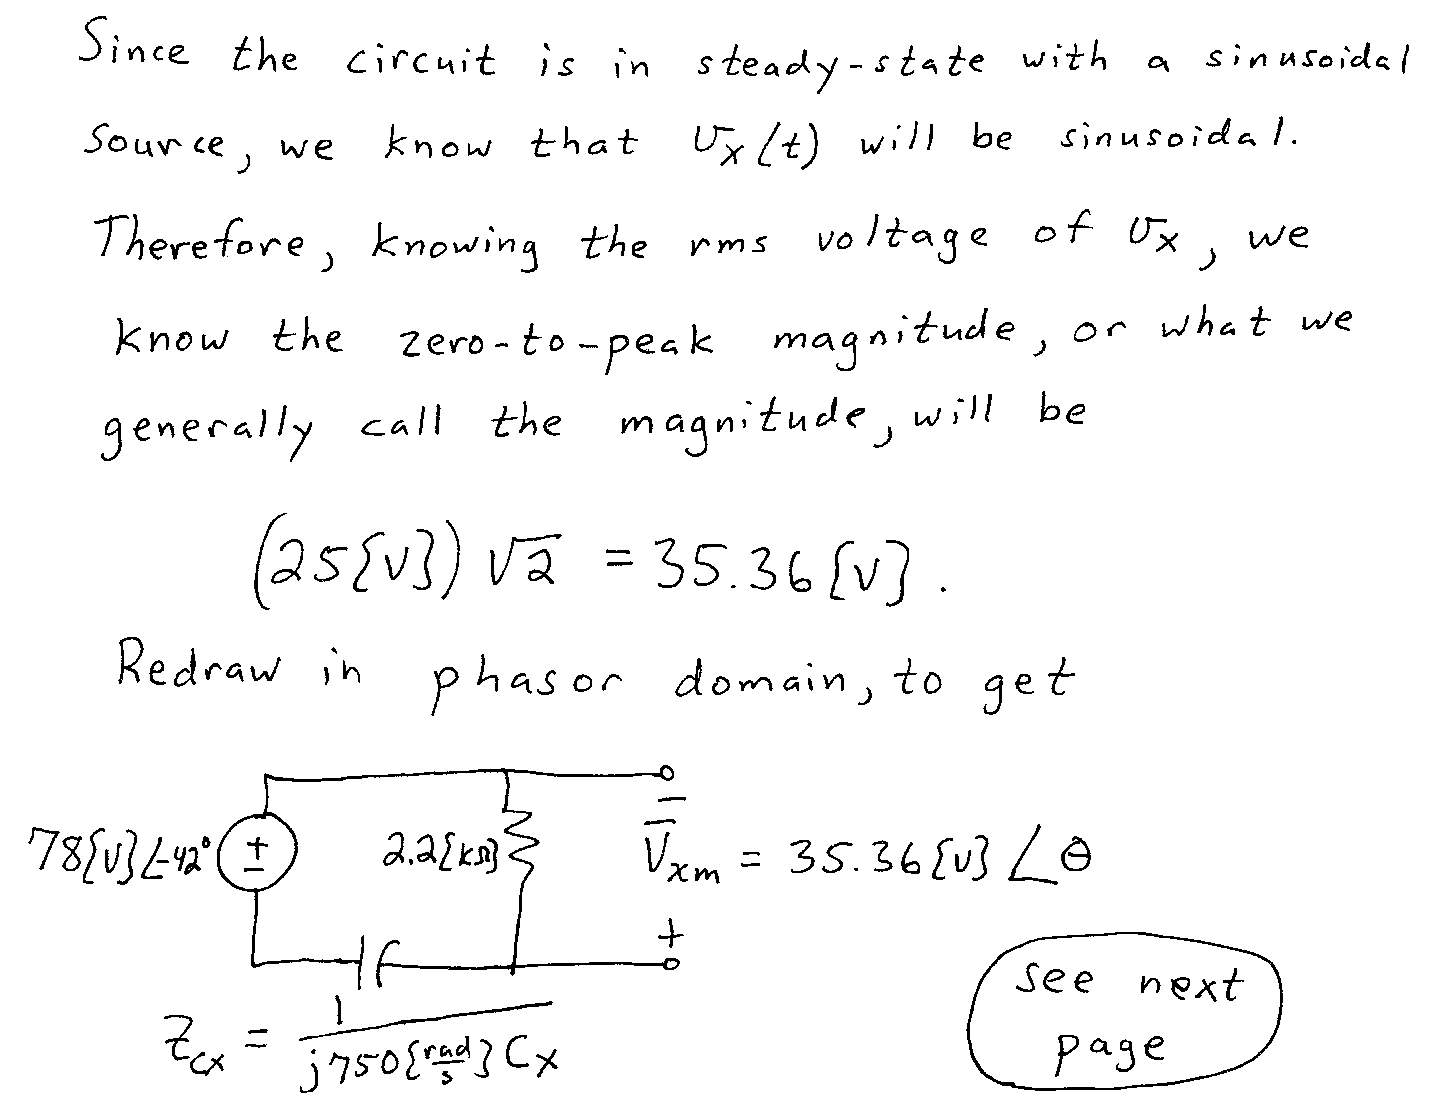 Since the circuit is in steady-state with a sinusoidal
source, we know that v_x(t) will be sinusoidal.
Therefore, knowing the rms voltage of v_x, we
know the zero-to-peak magnitude, or what we
generally call the magnitude, will be
(25[V])√2 = 35.36[V].
Redraw in phasor domain, to get
78[V]∠-42° + − 2.2[kΩ] − V̄_xm = 35.36[V]∠θ
+
Z_cx = 1/(j750[rad/s]C_x)
see next
page